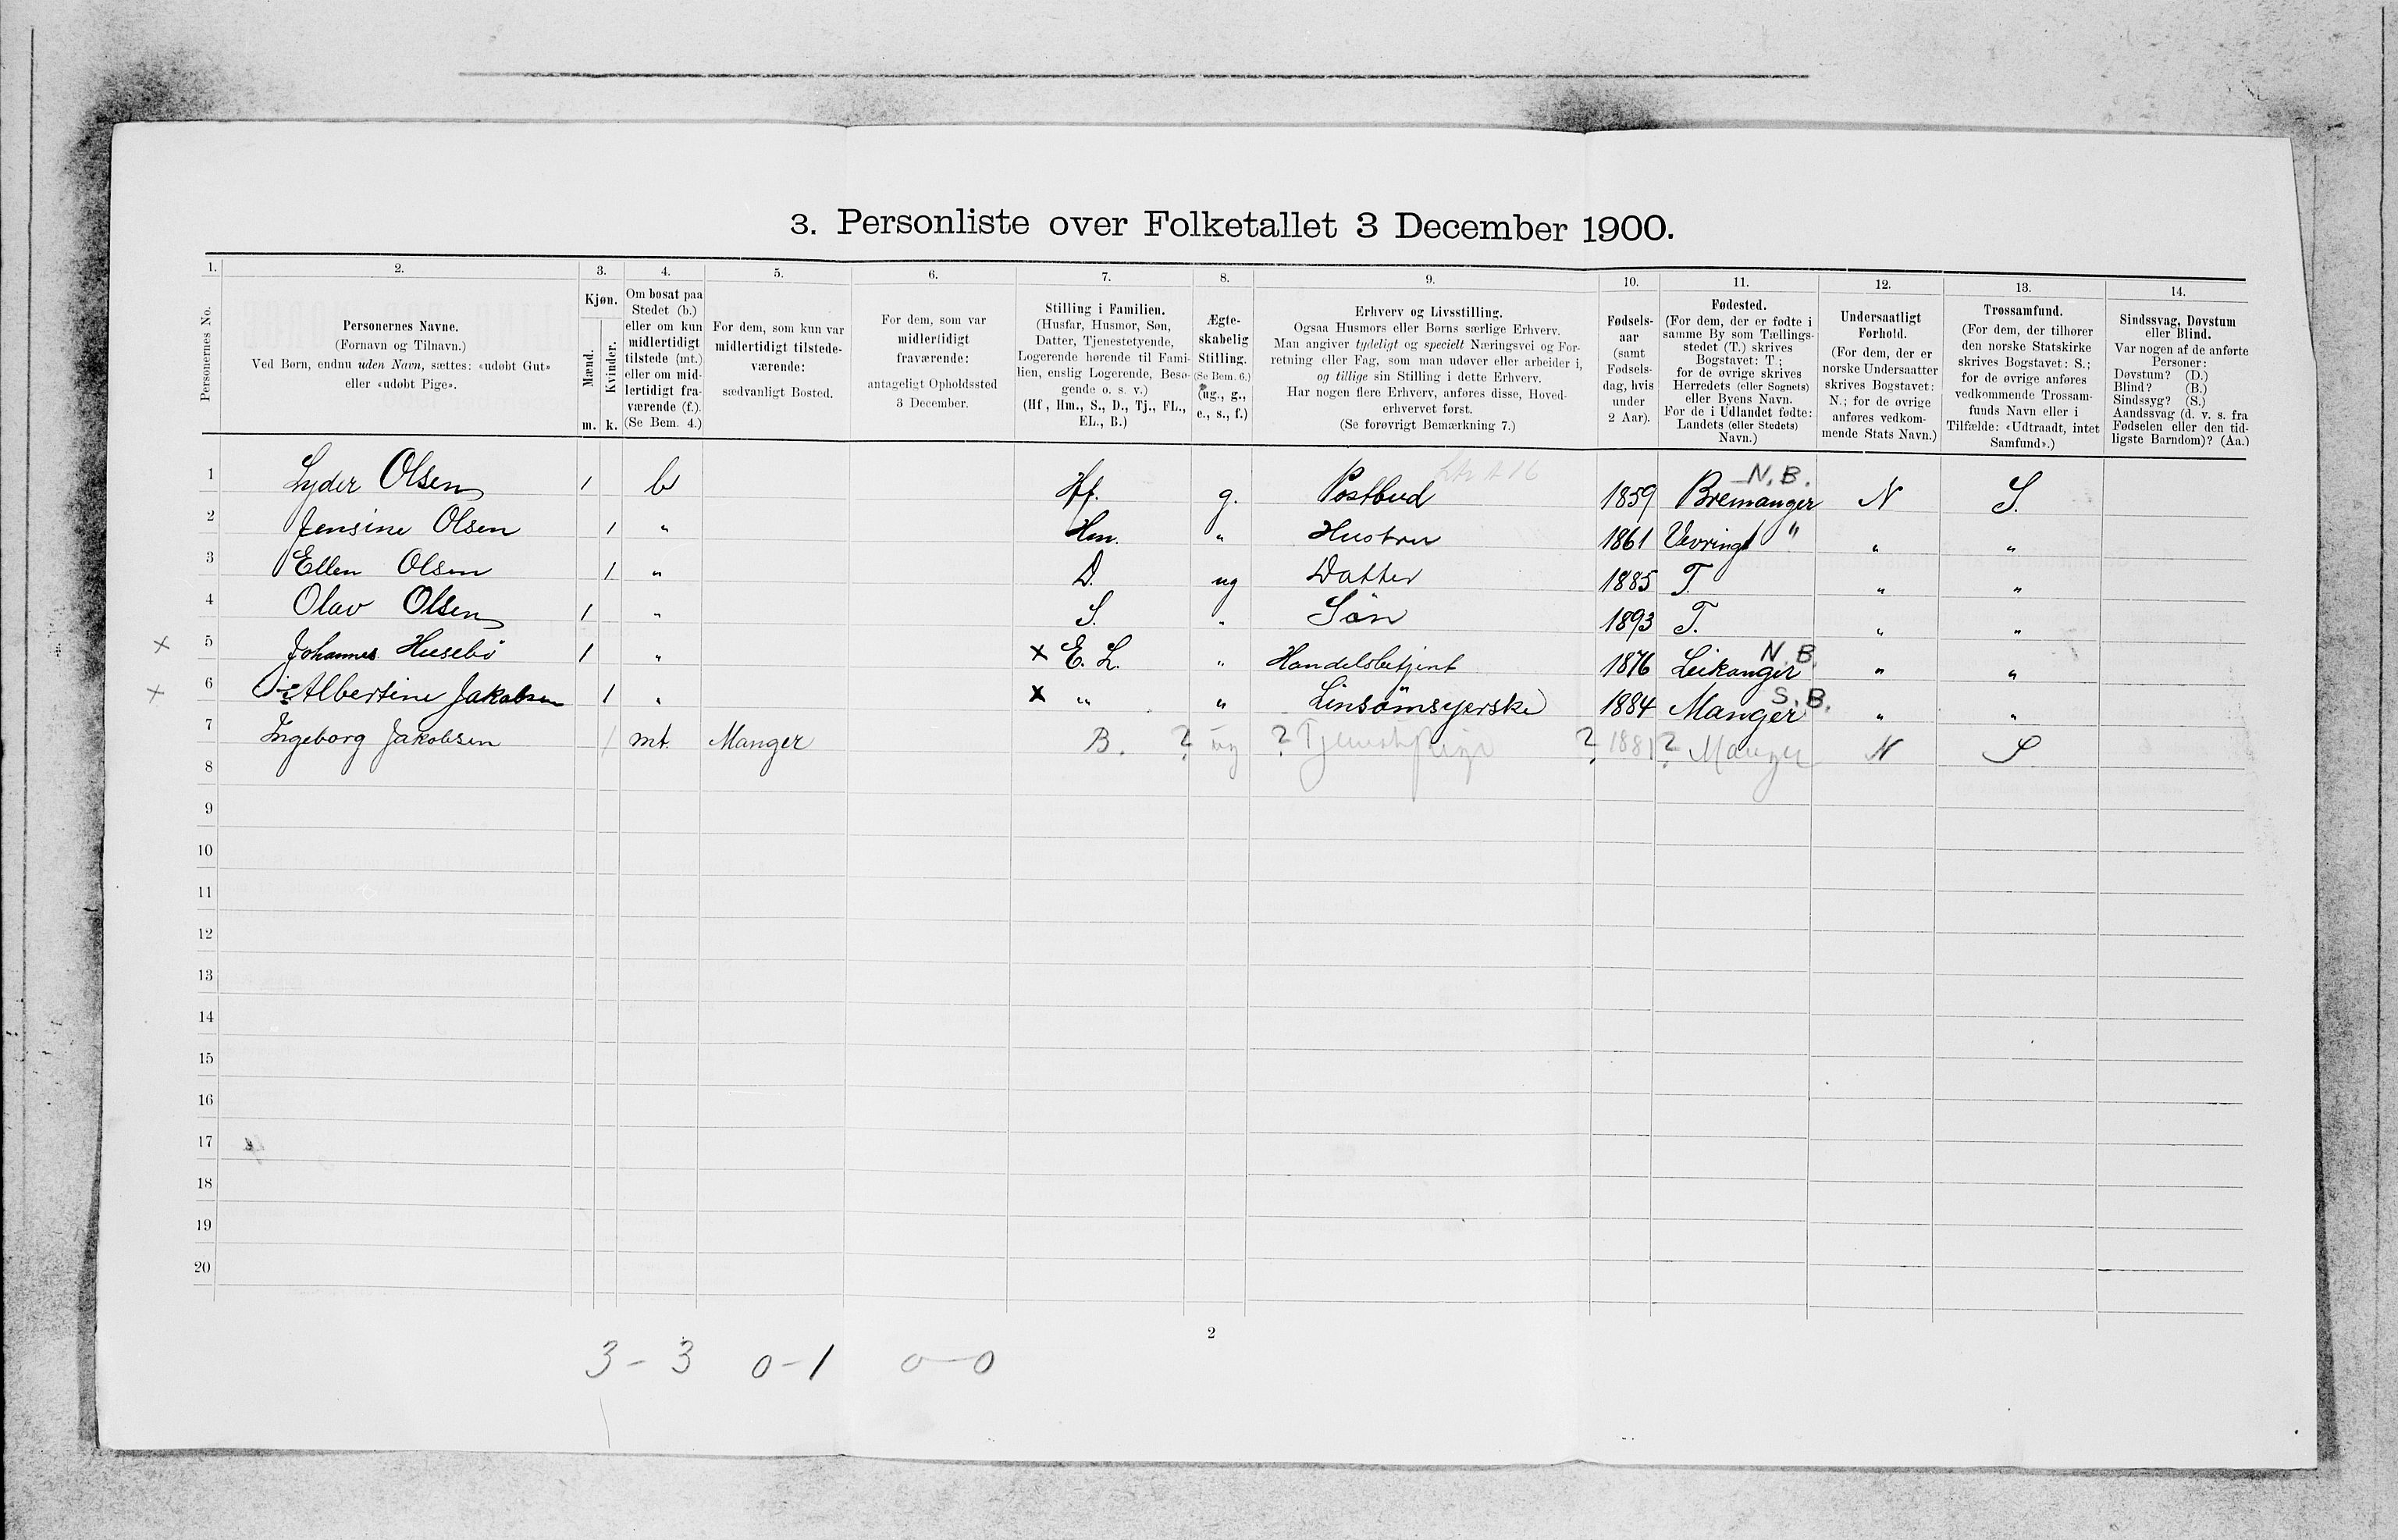 3. Personliste over Folketallet 3 December 1900.
1. 2. 3. 4. 5. 6. 7. 8. 9. 10. 11. 12. 13. 14.
Personernes No.
Personernes Navne.
(Fornavn og Tilnavn.)
Ved Børn, endnu uden Navn, sættes: «udøbt Gut»
eller «udøbt Pige».
Kjøn.
Mænd.
Kvinder.
m. k.
Om bosat paa
Stedet (b.)
eller om kun
midlertidigt
tilstede (mt.)
eller om mid-
lertidigt fra-
værende (f.).
(Se Bem. 4.)
For dem, som kun var
midlertidigt tilstede-
værende:
sædvanligt Bosted.
For dem, som var
midlertidigt
fraværende:
antageligt Opholdssted
3 December.
Stilling i Familien.
(Husfar, Husmor, Søn,
Datter, Tjenestetyende,
Logerende hørende til Fami-
lien, enslig Logerende, Besø-
gende o. s. v.)
(Hf, Hm., S., D., Tj., FL.,
EL., B.)
Ægte-
skabelig
Stilling.
(Se Bem. 6.)
(ug., g.,
e., s., f.)
Erhverv og Livsstilling.
Ogsaa Husmors eller Børns særlige Erhverv.
Man angiver tydeligt og specielt Næringsvei og For-
retning eller Fag, som man udøver eller arbeider i,
og tillige sin Stilling i dette Erhverv.
Har nogen flere Erhverv, anføres disse, Hoved-
erhvervet først.
(Se forøvrigt Bemærkning 7.)
Fødsels-
aar
(samt
Fødsels-
dag, hvis
under
2 Aar).
Fødested.
(For dem, der er fødte i
samme By som Tællings-
stedet (T.) skrives
Bogstavet: T;
for de øvrige skrives
Herredets (eller Sognets)
eller Byens Navn.
For de i Udlandet fødte:
Landets (eller Stedets)
Navn.)
Undersaatligt
Forhold.
(For dem, der er
norske Undersaatter
skrives Bogstavet:
N.; for de øvrige
anføres vedkom-
mende Stats Navn.)
Trossamfund.
(For dem, der tilhører
den norske Statskirke
skrives Bogstavet: S.;
for de øvrige anføres
vedkommende Trossam-
funds Navn eller i
Tilfælde: «Udtraadt, intet
Samfund».)
Sindssvag, Døvstum
eller Blind.
Var nogen af de anførte
Personer:
Døvstum? (D.)
Blind? (B.)
Sindssyg? (S.)
Aandssvag (d. v. s. fra
Fødselen eller den tid-
ligste Barndom)? (Aa.)
1 Lyder Olsen 1 b Hf. g. Postbud 1859 Bremanger N.B. N S.
2 Jensine Olsen 1 " Hm. " Hustru 1861 Vevring " " "
3 Ellen Olsen 1 " D. ug Datter 1885 T. " "
4 Olav Olsen 1 " S. " Sön 1893 T. " "
× 5 Johannes Husebö 1 " × E. L. " Handelsbetjent 1876 Leikanger N.B. " "
× 6 Albertine Jakobsen 1 " × " " Linsömsyerske 1884 Manger S.B. " "
7 Ingeborg Jakobsen 1 mt. Manger B. ? ug ? Tjenestepige ? 1881 ? Manger N S
8
9
10
11
12
13
14
15
16
17
18
19
20
2
3 - 3 0 - 1 0 - 0